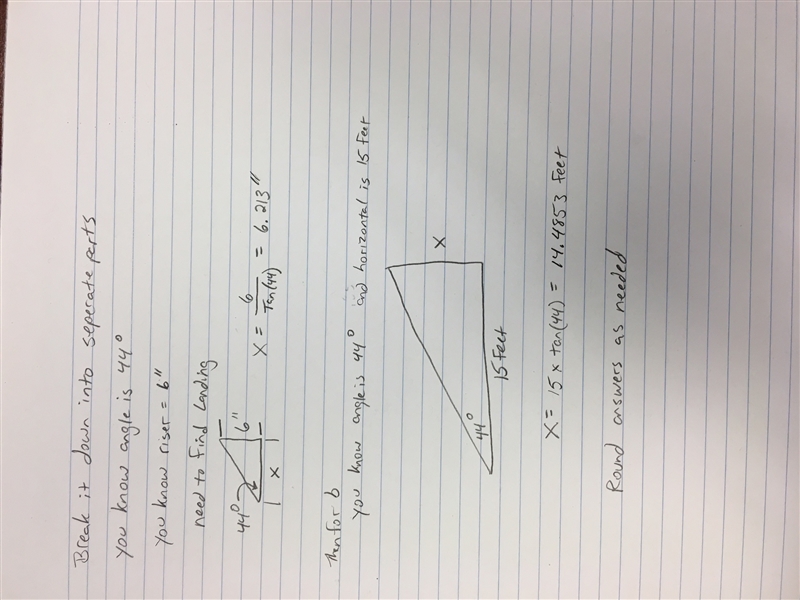 Break it down into seperate parts
you know angle is 44°
you know riser = 6"
need to find landing
44°
6"
X
X = 6 / Tan(44) = 6.213"
Then for b
you know angle is 44° and horizontal is 15 feet
X
44°
15 feet
X = 15 x tan(44) = 14.4853 feet
Round answers as needed